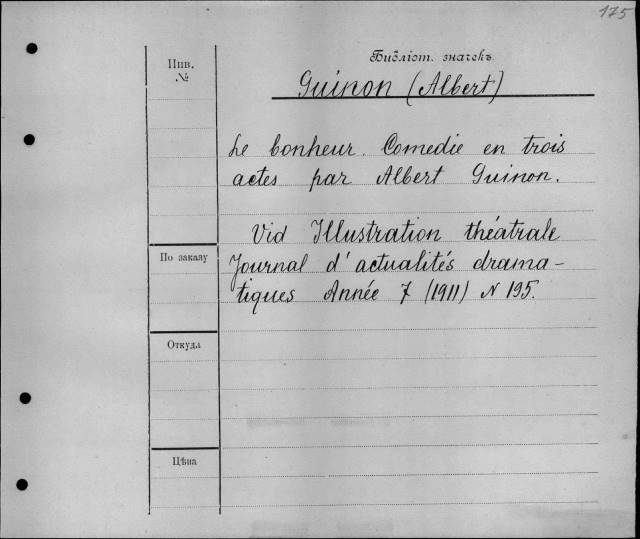 175
Библіот. значекъ.
Инв.
№
Guinon (Albert)
Le bonheur. Comedie en trois
actes par Albert Guinon.
Vid Illustration théatrale
Journal d'actualités drama-
tiques Année 7 (1911) N 195.
По заказу
Откуда
Цѣна